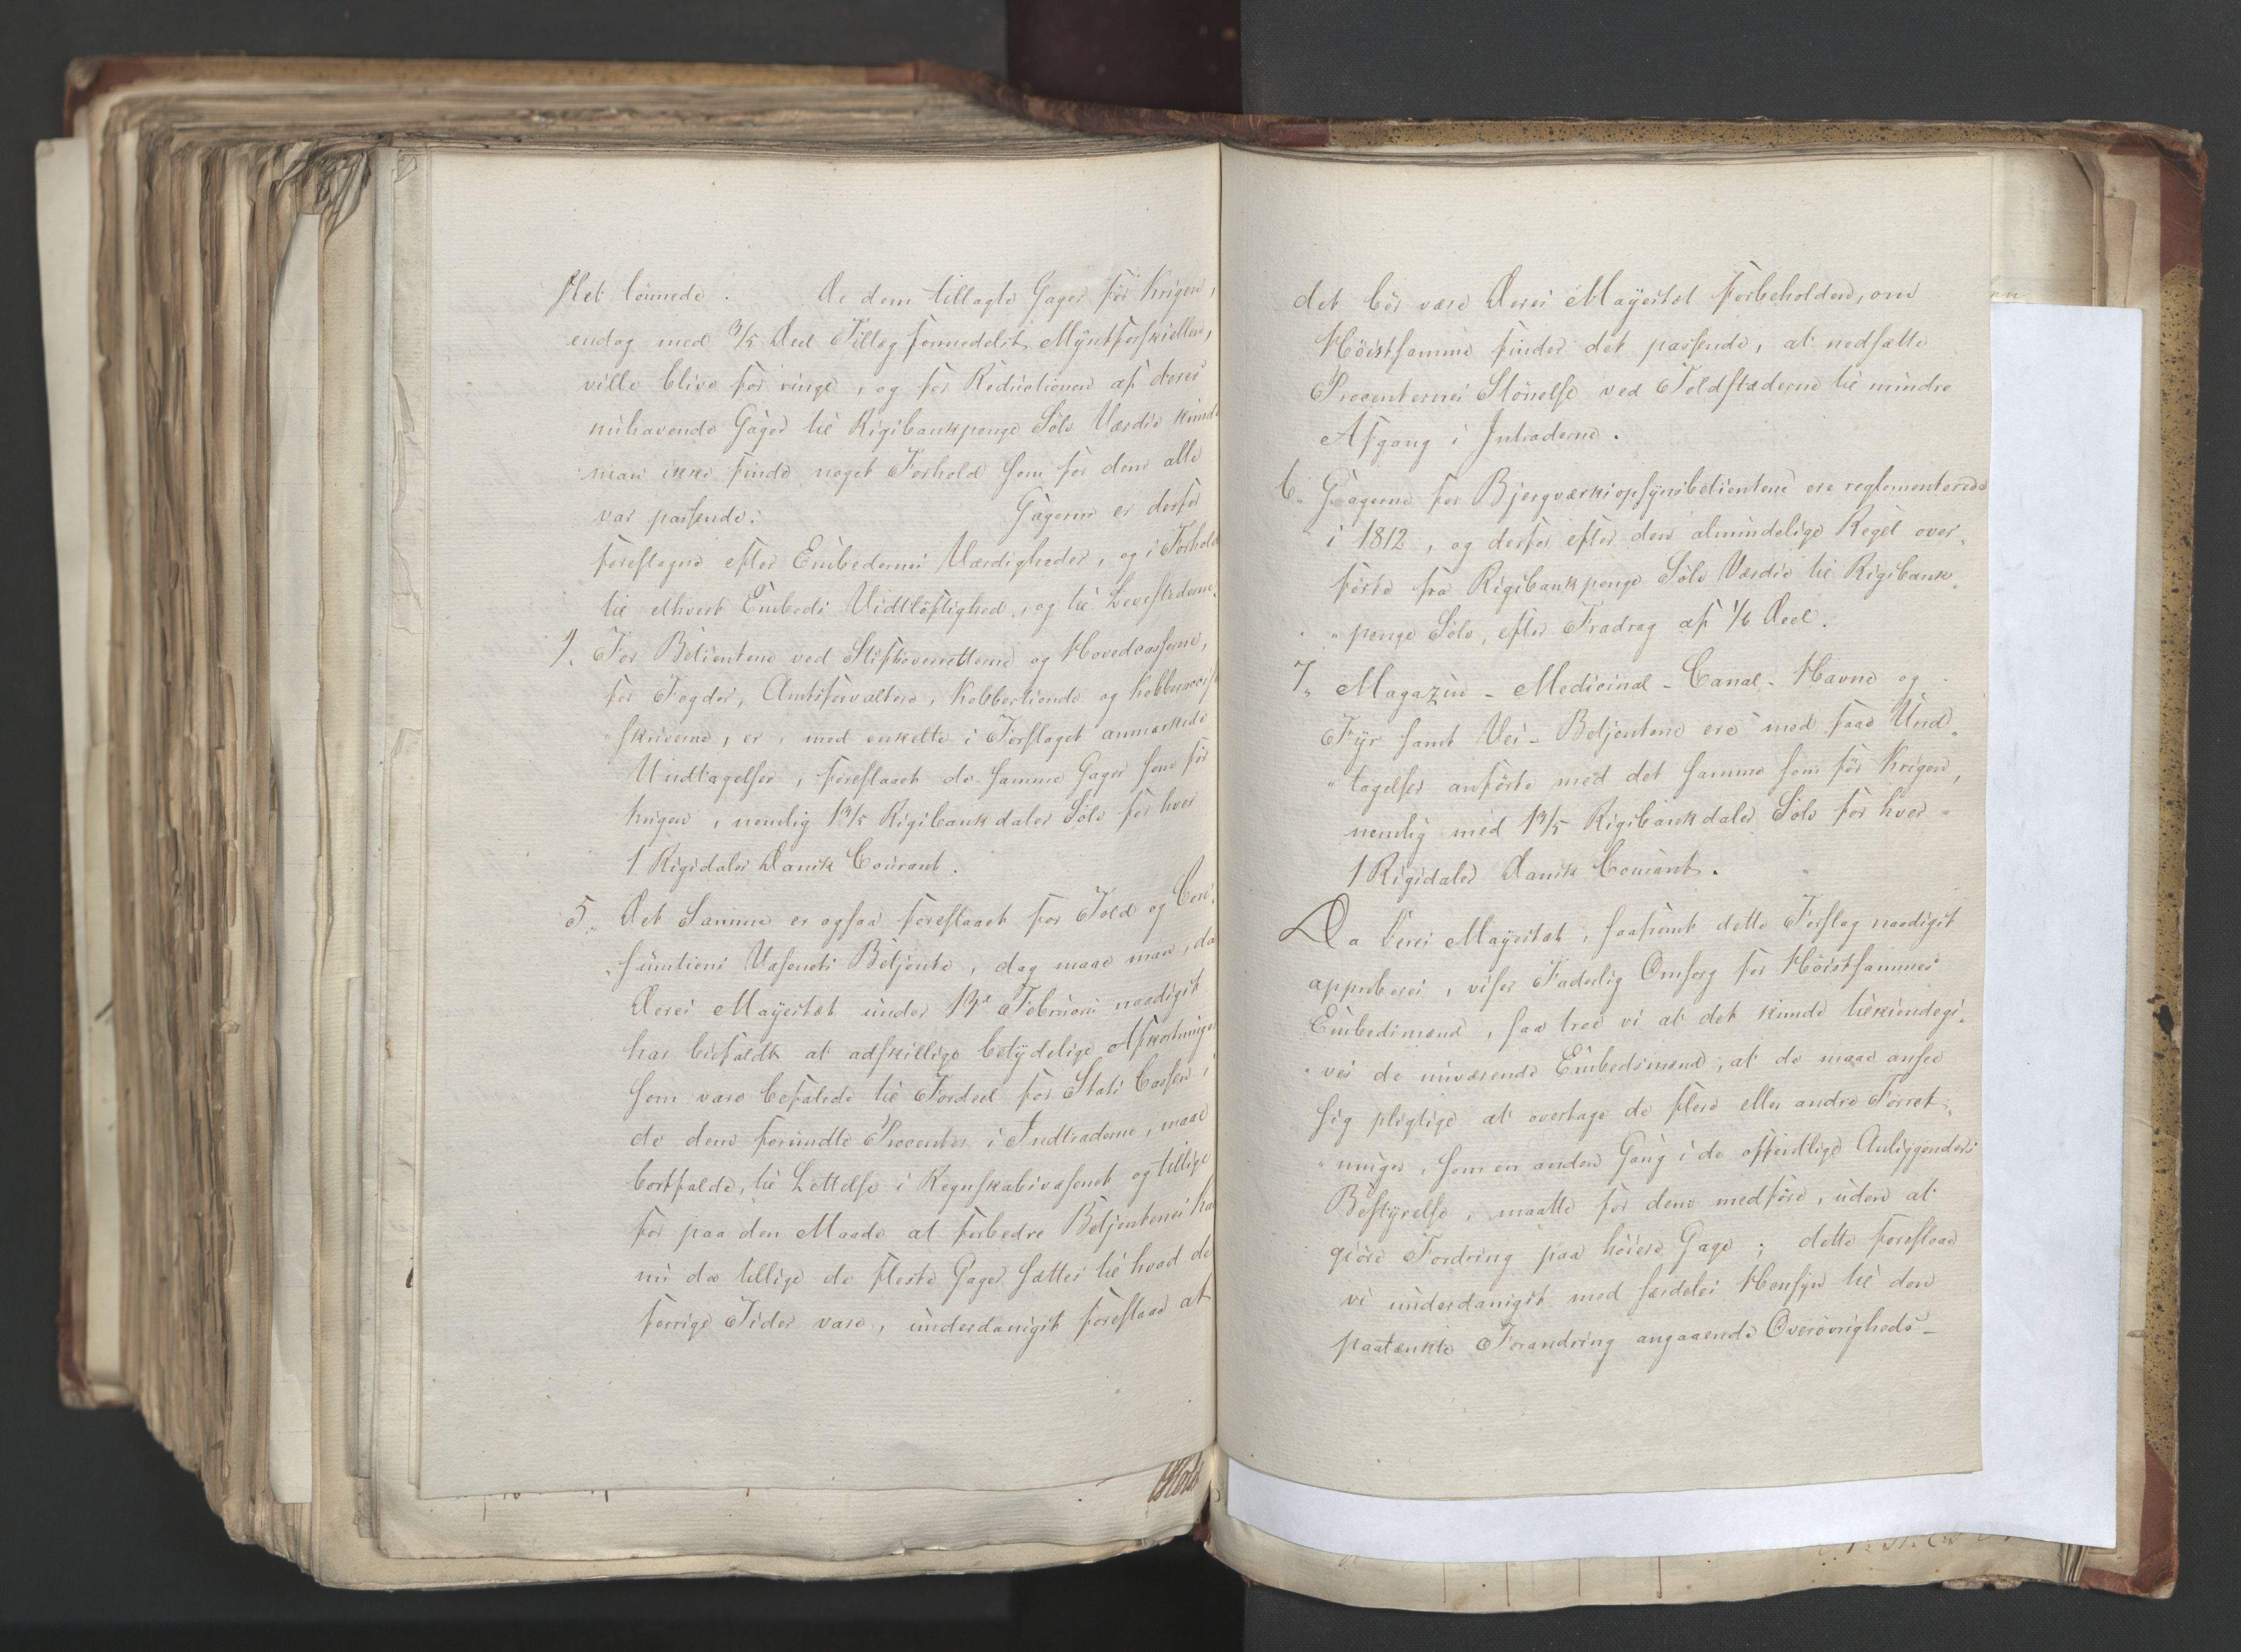 slet lönnede. De dem tillagte Gager för Krigen,
endog med 3/5 Deel Tillæg formedelst Myntforskiellen,
ville blive for ringe, og for Reductionen af deres
nuhavende Gager til Rigsbankpenge Sölv Værdie kunde
man ikke finde noget Forhold som for dem alle
var passende. Gagerne er derfor
foreslagne efter Embedernes Værdigheder, og i Forhold
til ethvert Embeds Vidtlöftighed, og til Levestederne.
4. For Betientene ved Stiftsoverretterne og Hovedcasserne,
for Fogder, Amtsforvaltere, Kobbertiende og
skriverne, er, med enkelte i Forslaget anmærkede
Undtagelser, foreslaaet de samme Gager som för
Krigen, nemlig 1 3/5 Rigsbankdaler Sölv for hver
1 Rigsdaler Dansk Courant.
5. Det Samme er ogsaa foreslaaet for Told og Con-
"sumtions Væsenets Betjente, dog maae man, da
Deres Mayestæt under 13de Februari naadigst
har bifaldt at adskillige betydelige Afkortninger
som vare befalede til Fordeel for Stats Cassen i
de dem forundte Procenter i Indtraderne, maae
bortfalde, til Lettelse i Regnskabsvæsenet og tillige
for paa den Maade at forbedre Betjentenes Kaar
nu da tillige de fleste Gager sættes til hvad de
forrige Tider vare, underdanigst foreslaae at
det bör være Deres Mayestæt forbeholden, om
Höistsamme finder det passende, at nedsætte
Procenternes Störrelse ved Toldstæderne til mindre
Afgang i Intraderne.
6. Gagerne for Bjergværksopsynsbetientene ere reglementerede
i 1812, og derfor efter den almindelige Regel over-
förte fra Rigsbankpenge Sölv Værdie til Rigsbank-
"penge Sölv, efter Fradrag af 1/6 Deel.
7. Magazin- Medicinal- Canal- Havne og
Fyr samt Vei-Betjentene ere med faae Und-
"tagelser anförte med det samme som för Krigen,
nemlig med 1 3/5 Rigsbankdaler Sölv for hver
1 Rigsdaler Dansk Courant.
Da Deres Mayestæt, saafremt dette Forslag naadigst
approberes, viser Faderlig Omsorg for Höistsammes
Embedsmænd, saa troe vi at det kunde tilkiendegi-
"ves de nuværende Embedsmænd, at de maae ansee
sig pligtige at overtage de flere eller andre Forret-
"ninger, som en anden Gang i de offentlige Anliggenders
Bestyrelse, maatte for dem medföre, uden at
giöre Fordring paa höiere Gage; dette foreslaae
vi underdanigst med særdeles Hensyn til den
paatænkte Forandring angaaende Overövrigheds-